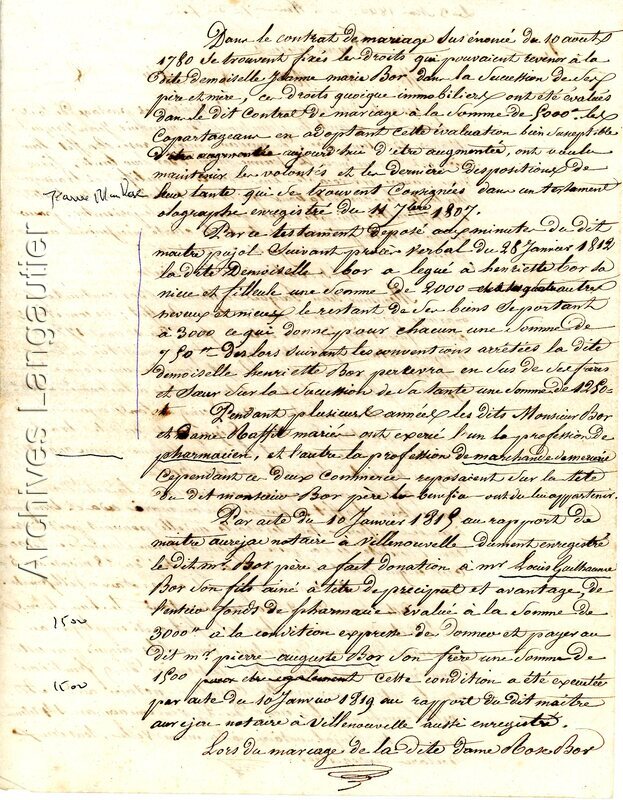 Dans le contrat de mariage susénoncé du 10 avril
1780 se trouvent fixés les droits qui pouvaient revenir à la
dite demoiselle Jeanne marie Bor dans la succession de ses
père et mère, ces droits quoique immobiliers ont été évalués
dans le dit Contrat de mariage à la somme de 5000 les
Copartageans en adoptant cette évaluation bien susceptible
aujourd'hui d'être augmentée, ont voulu
maintenir les volontés et les dernière despositions de
leur tante qui se trouvent consignées dans un testament
olographe enregistré du 11 7bre 1807.
Par ce testament déposé aux minutes du dit
maitre pujol suivant procès verbal du 28 Janvier 1812
la dite Demoiselle bor a legué à henriette bor sa
niece et filleule une somme de 2000 autres
neveux et nieces le restant de ses biens se portant
à 3000 ce qui donne pour chacun une somme de
750 des lors suivant les conventions arrêtées la dite
demoiselle henriette Bor percevra en sus de ses frères
et sœur sur la succession de sa tante une somme de 1250
Pendant plusieurs années les dits Monsieur Bor
et Dame Raffit mariés ont exercé l'un la profession de
pharmacien, et l'autre la profession de marchande de mercerie
Cependant ce deux Commerce reposaient sur la tête
du dit monsieur Bor père le
Par acte du 10 Janvier 1819 au rapport de
maitre aurejac notaire à Villenouvelle dument enregistré
le dit mr. Bor père a fait donation à mr Louis Guilhaume
Bor son fils ainé à titre de precipul et avantage, de
l'entier fonds de pharmacie évalué à la somme de
3000 à la condition expresse de donner et payer au
dit mr. pierre auguste Bor son frère une somme de
1500 cette condition a été executée
par acte du 10 Janvier 1819 au rapport du dit maitre
aurejac notaire à Villenouvelle aussi enregistré.
Lors du mariage de la dite dame Rose Bor
1500
1500
Archives Langautier